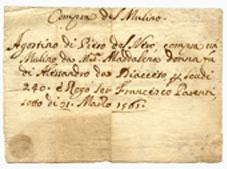 Compra del Mulino.
Agostino di Piero del Nero, compra un
Mulino da Mad. Maddalena donna fu
di Alessandro da Diacceto, p. scudi
240. e Rogo Ser Francesco Parenti,
sotto dì 21. Marzo 1561.